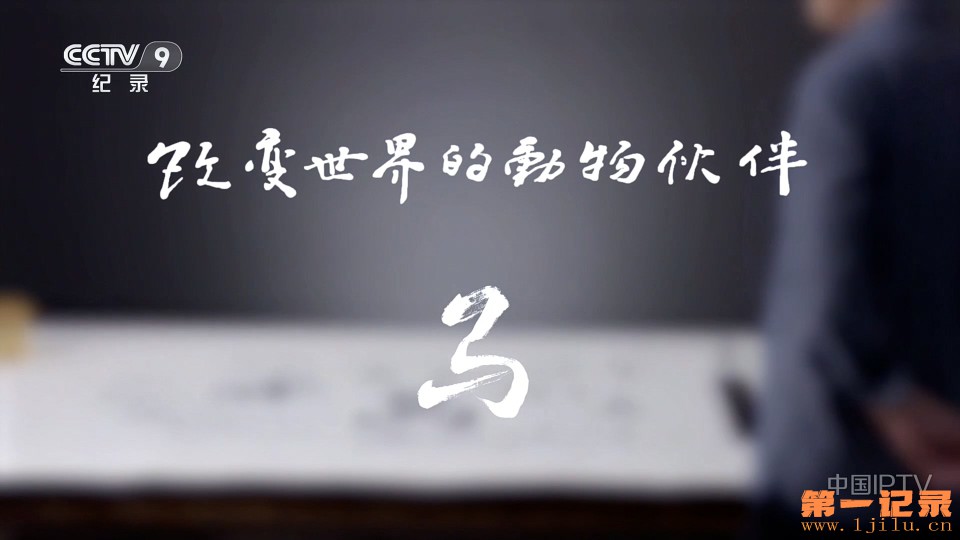 CCTV 9
纪录
改变世界的動物伙伴
马
中国IPTV
第一记录
www.1jilu.cn